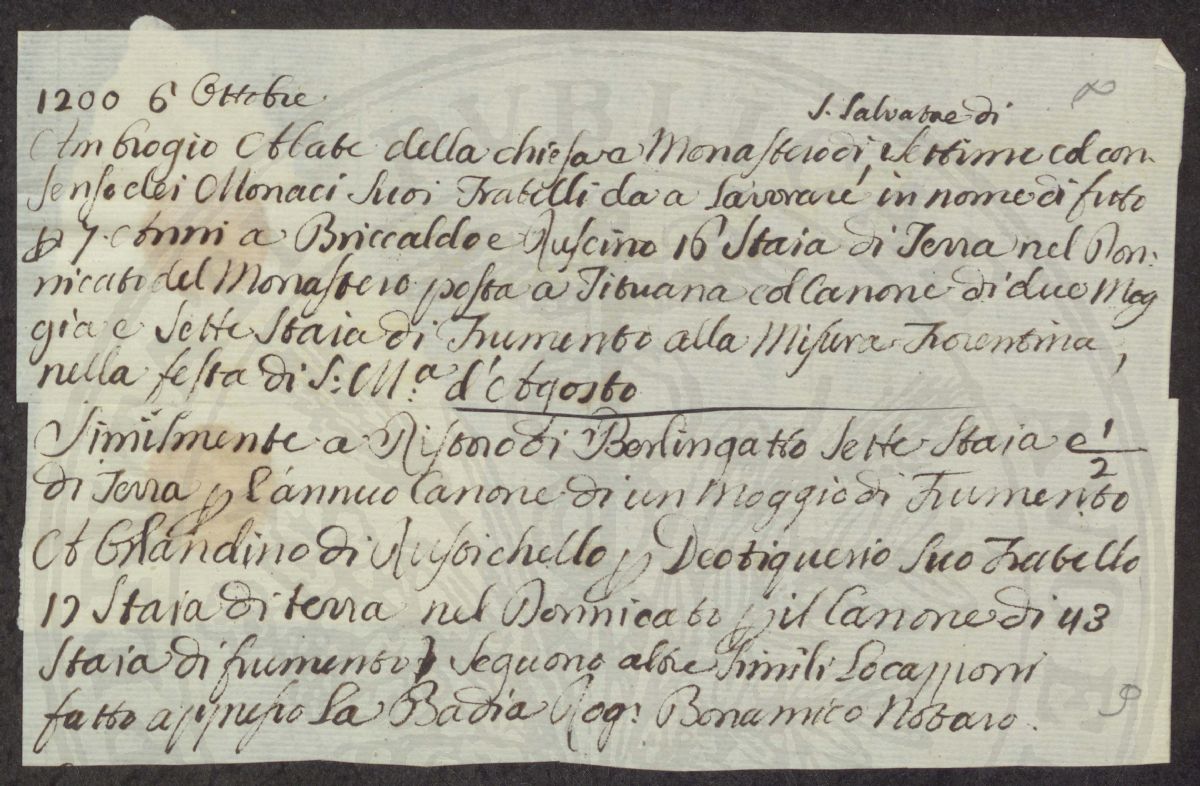 1200 6 Ottobre
S. Salvatore di
Ambrogio Abate della chiesa e Monastero di Settimo col con-
senso dei Monaci suoi Fratelli da a Lavorare, in nome di fitto
p 7 Anni a Briccaldo e Ruscino 16 Staia di Terra nel Don:
nicato del Monastero posta a Tituana col Canone di due Mog
gia e Sette Staia di Frumento alla Misura Fiorentina,
nella festa di S: M.a d'Agosto
Similmente a Ristoro di Berlingatto Sette Staia e 1/2
di Terra p l'annuo Canone di un Moggio di Frumento
A Orlandino di Rustichello p Deotiguerio Suo Fratello
17 Staia di terra nel Donnicato p il Canone di 43
Staia di frumento Seguono altre simili Locazzioni
fatto appresso La Badia Rog: Bonamico Notaro.